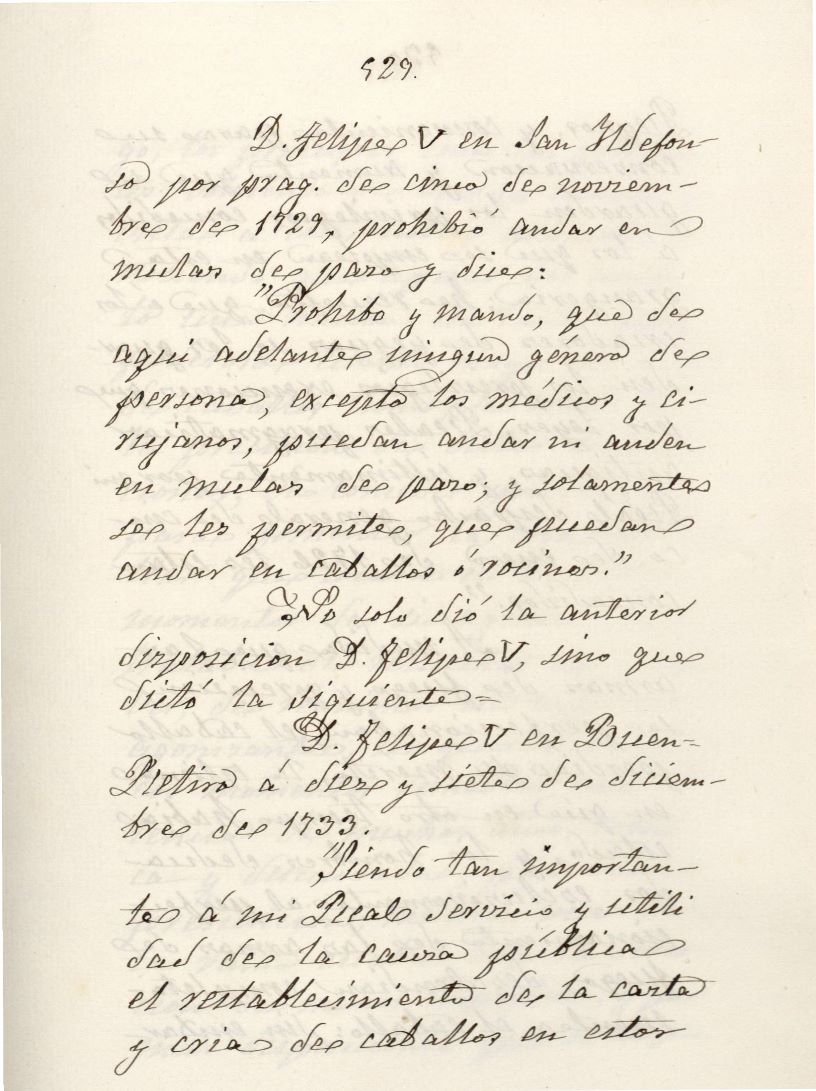 529.
D. Felipe V en San Ildefon-
so por prag. de cinco de noviem-
bre de 1729, prohibió andar en
mulas de paso y dice:
"Prohibo y mando, que de
aqui adelante ningun género de
persona, excepto los médicos y ci-
rujanos, puedan andar ni anden
en mulas de paso; y solamente
se les permite, que puedan
andar en caballos ó rocines."
No solo dió la anterior
disposicion D. Felipe V, sino que
dictó la siguiente=
D. Felipe V en Buen=
Retiro á diez y siete de diciem-
bre de 1733.
"Siendo tan importan-
te á mi Real servicio y utili
dad de la causa pública
el restablecimiento de la casta
y cria de caballos en estos